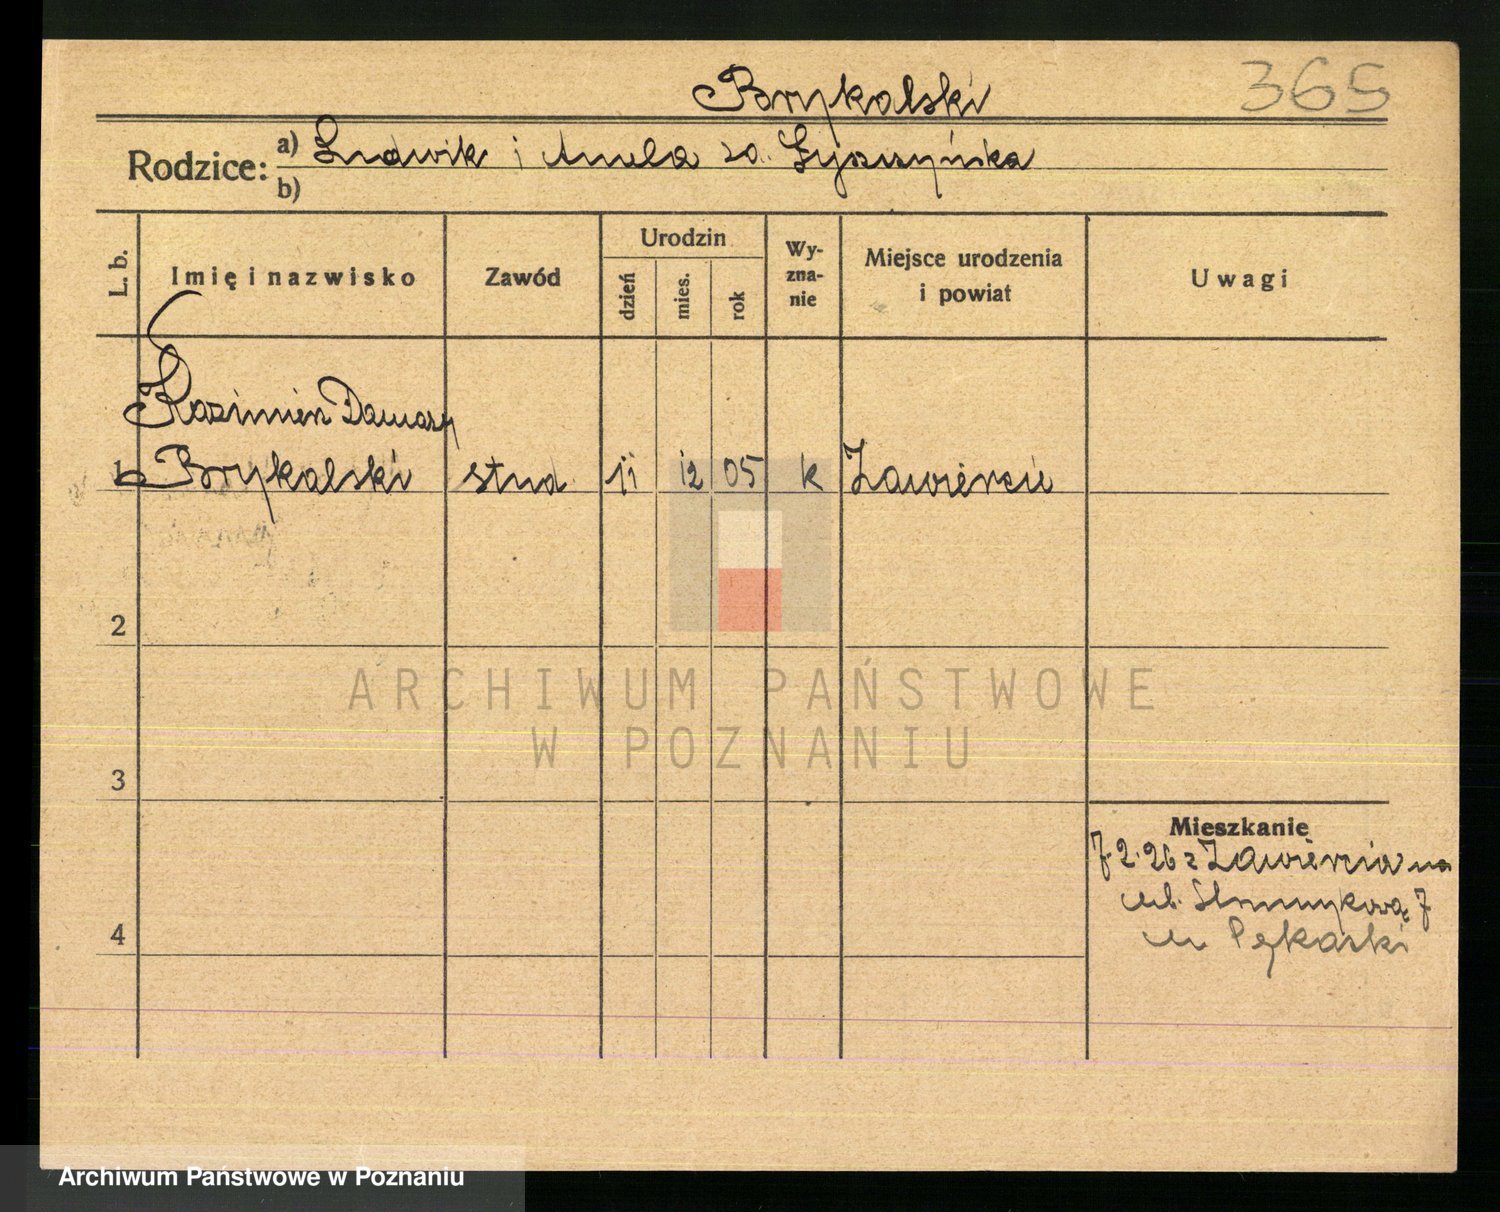 Brykalski 365
Rodzice: a) Ludwik i Aniela zd. Łyszczyńska
b)
L. b.
Imię i nazwisko
Zawód
Urodzin
dzień
mies.
rok
Wy-
zna-
nie
Miejsce urodzenia
i powiat
Uwagi
Kazimierz Damazy
1 Brykalski stud 11 12 05 k Zawiercie
2
3
4
Mieszkanie
7 2. 26 z Zawiercia na
ul.
u Pękarski
ARCHIWUM PAŃSTWOWE
W POZNANIU
Archiwum Państwowe w Poznaniu